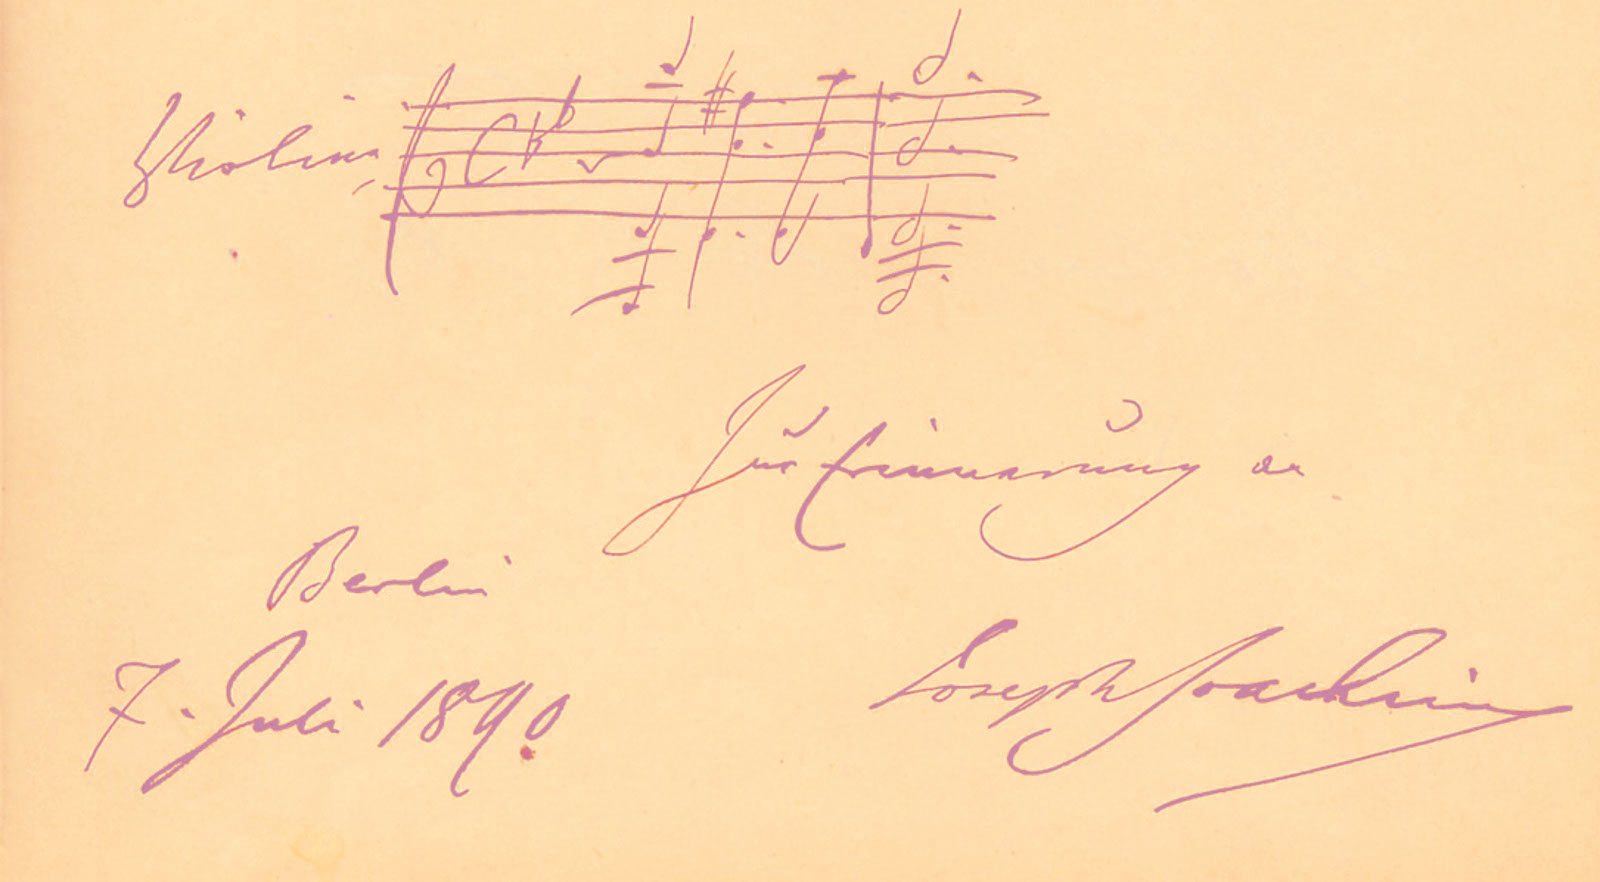 Violine
Zur Erinnerung an
Berlin
7. Juli 1890
Joseph Joachim